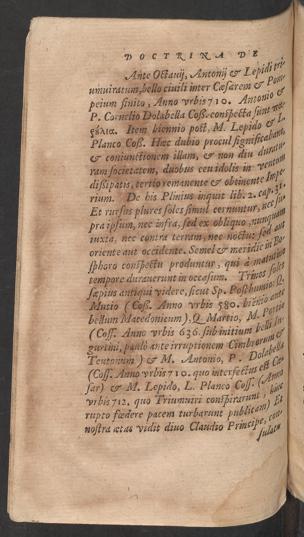 DOCTRINA DE
Ante Octavij, Antonij & Lepidi tri-
umviratum, bello civili inter Cæsarem & Pom-
peium finito, Anno vrbis 710. Antonio &
P. Cornelio Dolabella Coß. conspecta sunt
Item biennio post, M. Lepido & L.
Planco Coß. Hæc dubio procul significabant,
& coniunctionem illam, & non diu duratu-
ram societatem, duobus ceu idolis in ventum
dissipatis, tertio remanente & obtinente Impe-
rium. De his Plinius inquit lib. 2. cap. 31.
Et rursus plures soles simul cernuntur, nec su-
pra ipsum, nec infra, sed ex obliquo, nunquam
iuxta, nec contra terram, nec noctu: sed aut
oriente aut occidente. Semel & meridie in Bo-
sphoro conspecti produntur, qui à matutino
tempore duraverunt in occasum. Trinos soles
sæpius antiqui videre, sicut Sp. Posthumio, Q.
Mutio (Coß. Anno vrbis 580.
bellum Macedonicum), Q. Martio, M. Portio
(Coss. Anno vrbis 636. sub initium belli Iu-
gurtini, paulò ante irruptionem Cimbrorum &
Teutonum) & M. Antonio, P. Dolabella
(Coss. Anno vrbis 710. quo interfectus est Cæ-
sar) & M. Lepido, L. Planco Coss. (Anno
vrbis 712. quo Triumviri conspirarunt, hinc
rupto fœdere pacem turbarunt publicam) Et
nostra ætas vidit divo Claudio Principe, con-
sulatu